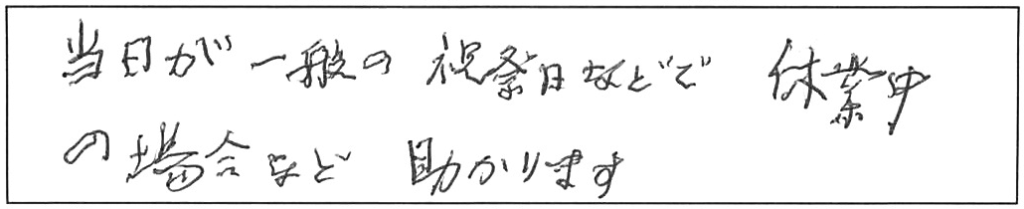 当日が一般の祝祭日などで 休業中
の場合など 助かります